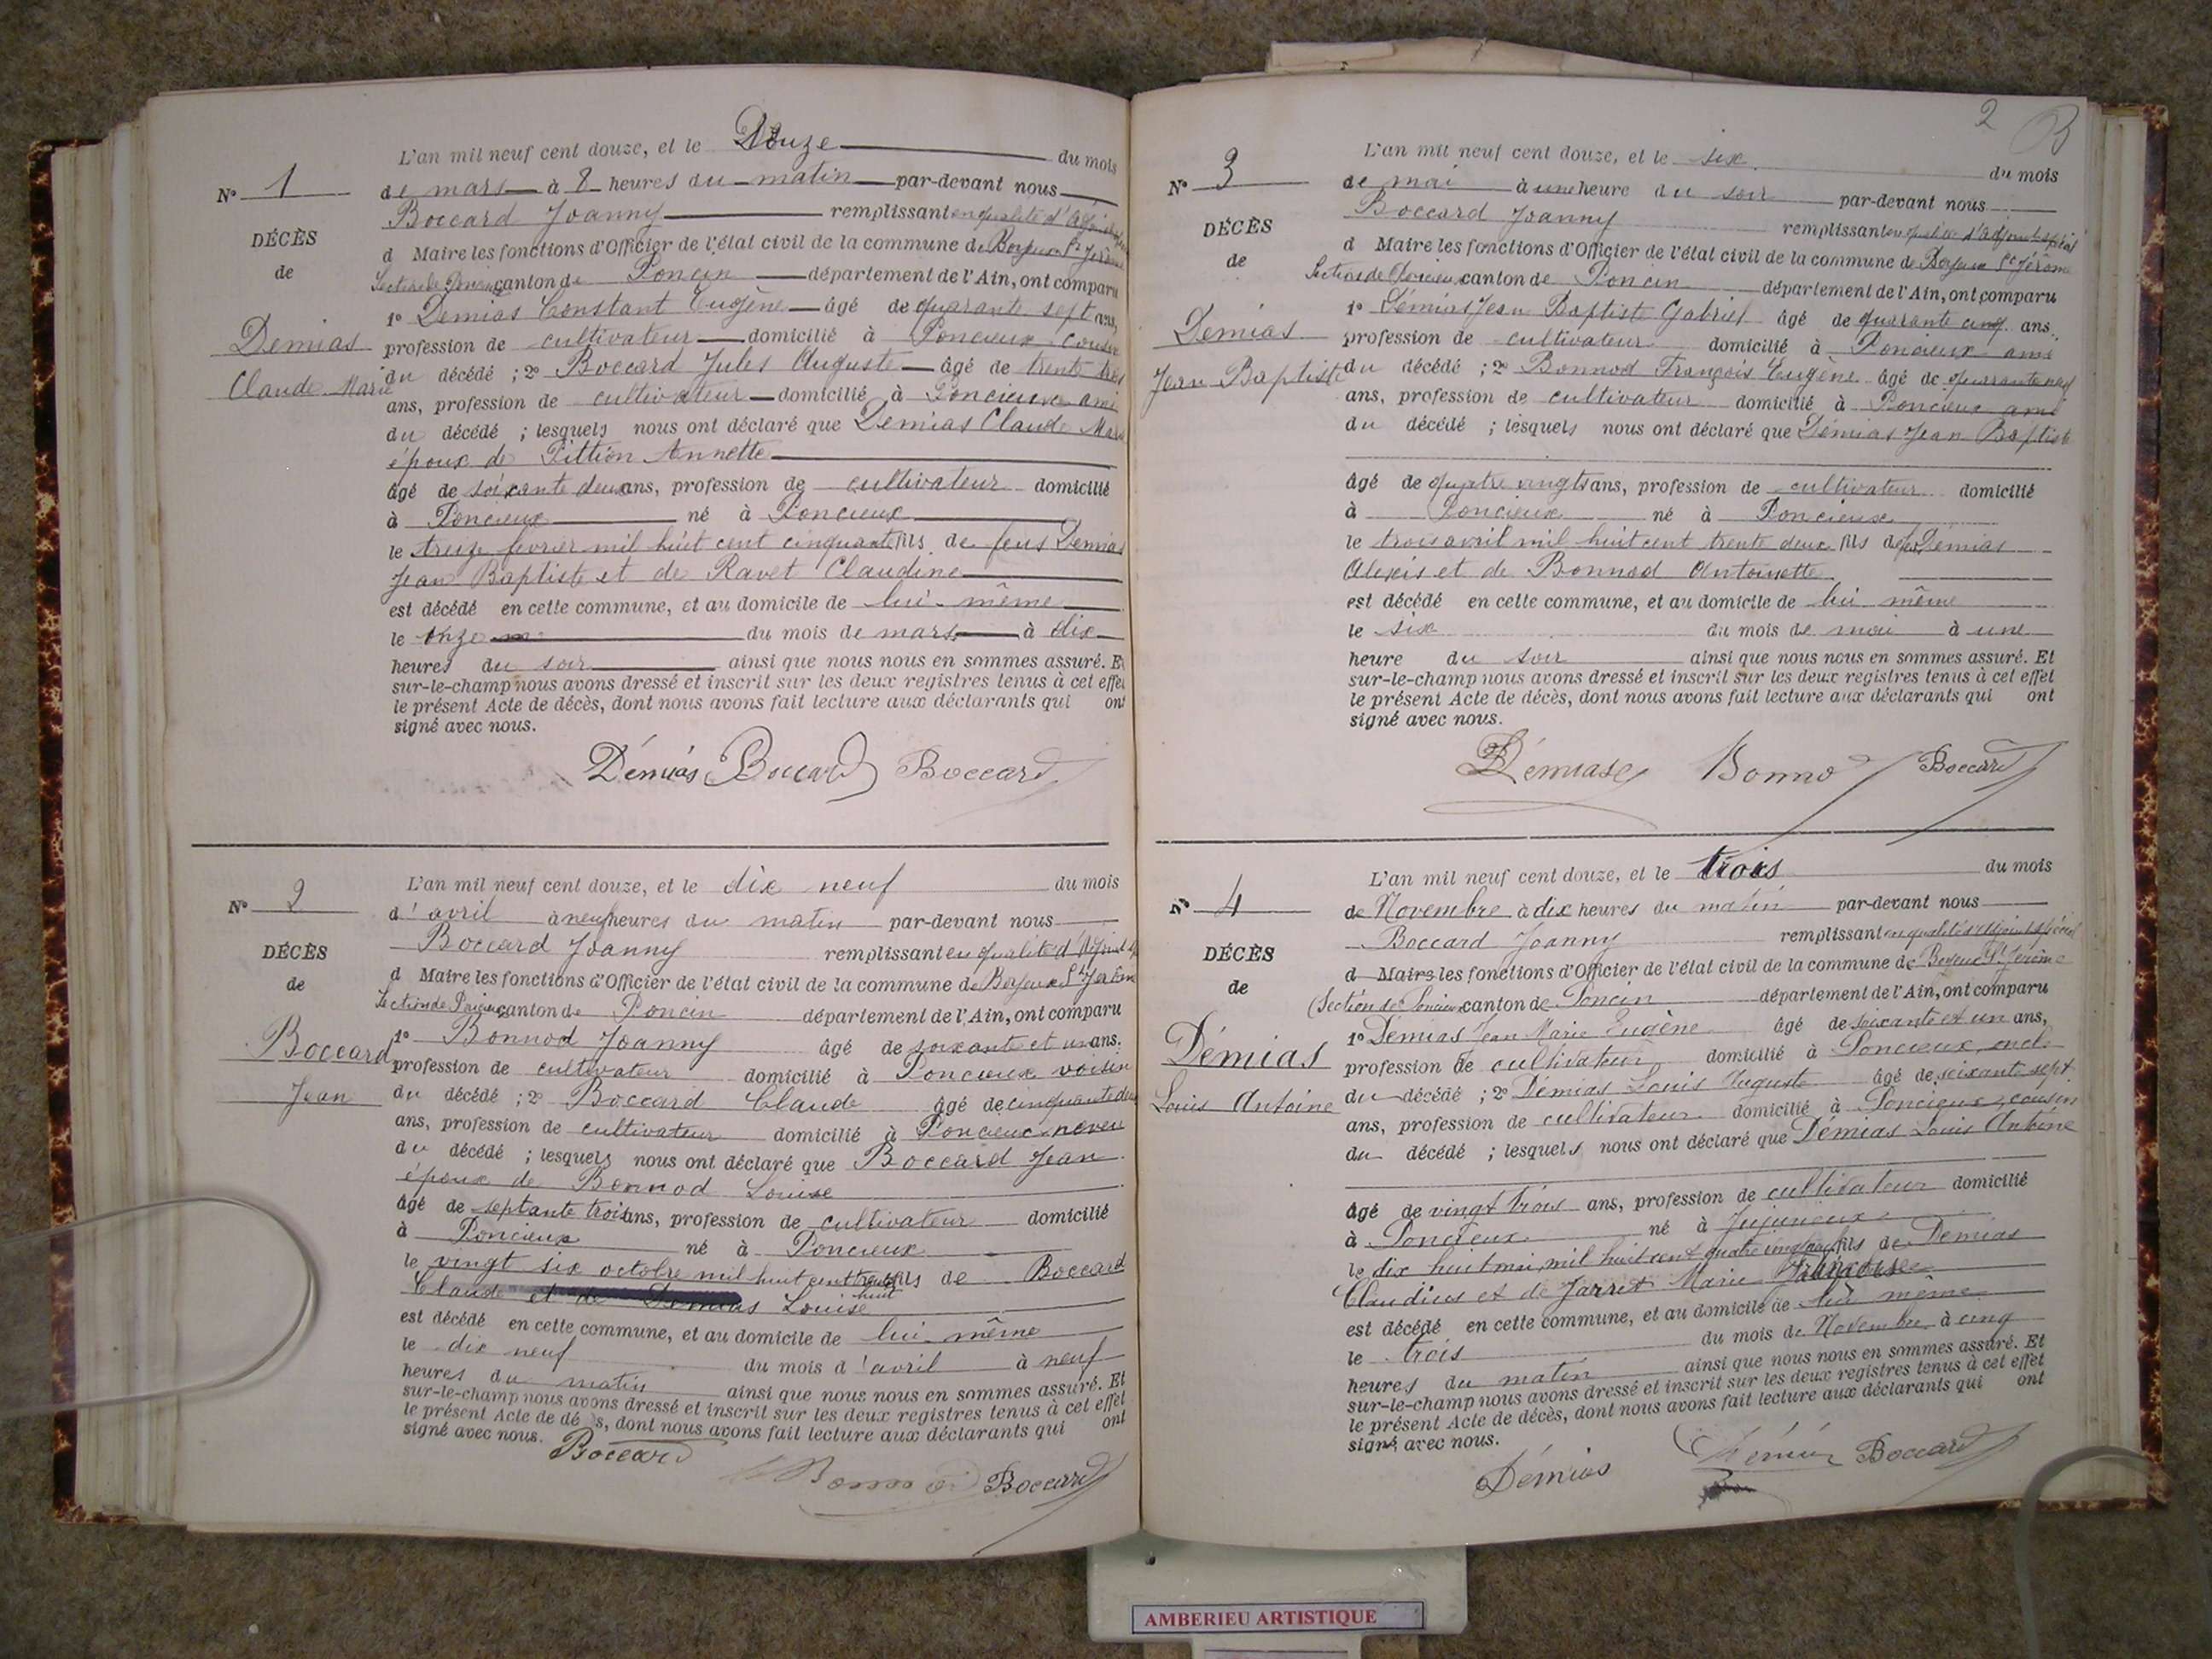 L'an mil neuf cent douze, et le Douze du mois
N° 1
de mars à 8 heures du matin par-devant nous
Boccard Joanny remplissant en qualité d'Adjoint
DÉCÈS
de
Demias
Claude Marie
d Maire les fonctions d'Officier de l'état civil de la commune de Boyeux St Jérôme
Section de Poncieux canton de Poncin département de l'Ain, ont comparu
1° Demias Constant Eugène âgé de quarante sept ans,
profession de cultivateur domicilié à Poncieux cousin
du décédé ; 2° Boccard Jules Auguste âgé de trente trois
ans, profession de cultivateur domicilié à Poncieux ami
du décédé ; lesquels nous ont déclaré que Demias Claude Marie
époux de Pittion Annette
âgé de soixante deux ans, profession de cultivateur domicilié
à Poncieux né à Poncieux
le treize fevrier mil huit cent cinquante fils de feus Demias
Jean Baptiste et de Ravet Claudine
est décédé en cette commune, et au domicile de lui-même
le onze du mois de mars à dix
heures du soir ainsi que nous nous en sommes assuré. Et
sur-le-champ nous avons dressé et inscrit sur les deux registres tenus à cet effet
le présent Acte de décès, dont nous avons fait lecture aux déclarants qui ont
signé avec nous.
Démias Boccard Boccard
L'an mil neuf cent douze, et le dix neuf du mois
N° 2
d'avril à neuf heures du matin par-devant nous
Boccard Joanny remplissant en qualité d'Adjoint
DÉCÈS
de
Boccard
Jean
d Maire les fonctions d'Officier de l'état civil de la commune de Boyeux St Jérôme
Section de Poncieux canton de Poncin département de l'Ain, ont comparu
1° Bonnod Joanny âgé de soixante et un ans.
profession de cultivateur domicilié à Poncieux voisin
du décédé ; 2° Boccard Claude âgé de cinquante deux
ans, profession de cultivateur domicilié à Poncieux neveu
du décédé ; lesquels nous ont déclaré que Boccard Jean
époux de Bonnod Louise
âgé de septante trois ans, profession de cultivateur domicilié
à Poncieux né à Poncieux
le vingt six octobre mil huit cent trente huit fils de Boccard
Claude et de Demias Louise
est décédé en cette commune, et au domicile de lui-même
le dix neuf du mois d'avril à neuf
heures du matin ainsi que nous nous en sommes assuré. Et
sur-le-champ nous avons dressé et inscrit sur les deux registres tenus à cet effet
le présent Acte de dé s, dont nous avons fait lecture aux déclarants qui ont
signé avec nous.
Boccard Bonnod Boccard
2
L'an mil neuf cent douze, et le six du mois
N° 3
de mai à une heure du soir par-devant nous
Boccard Joanny remplissant en qualité d'adjoint spécial
DÉCÈS
de
Demias
Jean Baptiste
d Maire les fonctions d'Officier de l'état civil de la commune de Boyeux St Jérôme
Section de Poncieux canton de Poncin département de l'Ain, ont comparu
1° Démias Jean Baptiste Gabriel âgé de quarante cinq ans.
profession de cultivateur domicilié à Poncieux ami
du décédé ; 2° Bonnod François Eugène âgé de quarante neuf
ans, profession de cultivateur domicilié à Poncieux ami
du décédé ; lesquels nous ont déclaré que Démias Jean Baptiste
âgé de quatre vingts ans, profession de cultivateur domicilié
à Poncieux né à Poncieux
le trois avril mil huit cent trente deux fils de feu Démias
Alexis et de Bonnod Antoinette
est décédé en cette commune, et au domicile de lui même
le six du mois de mai à une
heure du soir ainsi que nous nous en sommes assuré. Et
sur-le-champ nous avons dressé et inscrit sur les deux registres tenus à cet effet
le présent Acte de décès, dont nous avons fait lecture aux déclarants qui ont
signé avec nous.
Démias Bonnod Boccard
L'an mil neuf cent douze, et le trois du mois
N° 4
de Novembre à dix heures du matin par-devant nous
Boccard Joanny remplissant en qualité d'adjoint spécial
DÉCÈS
de
Démias
Louis Antoine
d Maire les fonctions d'Officier de l'état civil de la commune de Boyeux St Jérôme
(Section de Poncieux canton de Poncin département de l'Ain, ont comparu
1° Demias Jean Marie Eugène âgé de soixante et un ans,
profession de cultivateur domicilié à Poncieux, oncle
du décédé ; 2° Démias Louis Auguste âgé de soixante sept
ans, profession de cultivateur domicilié à Poncieux, cousin
du décédé ; lesquels nous ont déclaré que Démias Louis Antoine
âgé de vingt trois ans, profession de cultivateur domicilié
à Poncieux né à Jujurieux
le dix huit mai mil huit cent quatre vingt neuf fils de Demias
Claudius et de Jarret Marie Françoise
est décédé en cette commune, et au domicile de lui même
le trois du mois de Novembre à cinq
heures du matin ainsi que nous nous en sommes assuré. Et
sur-le-champ nous avons dressé et inscrit sur les deux registres tenus à cet effet
le présent Acte de décès, dont nous avons fait lecture aux déclarants qui ont
signé avec nous.
Démias Démias Boccard
AMBERIEU ARTISTIQUE